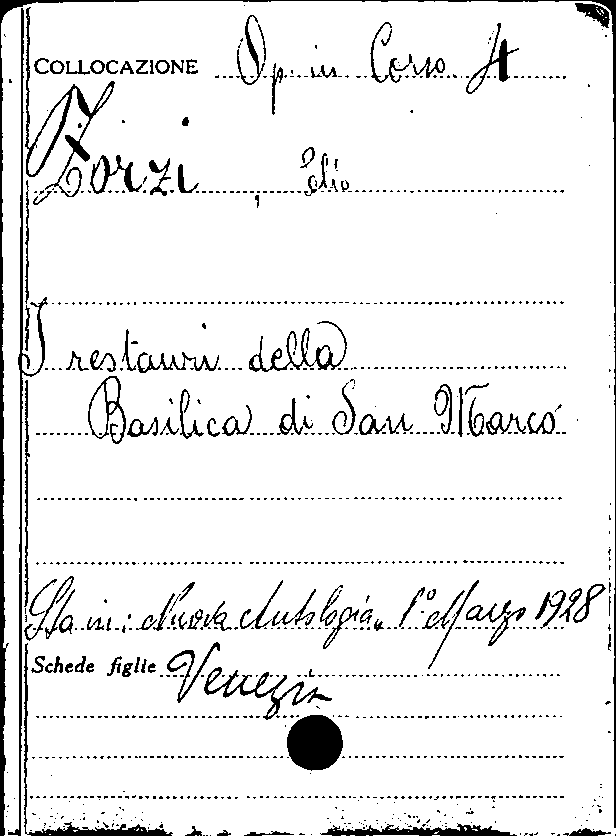 COLLOCAZIONE Op. in Corso 4
Zorzi, Elio
I restauri della
Basilica di San Marco
Sta in: Nuova Antologia, 1º Marzo 1928
Schede figlie Venezia